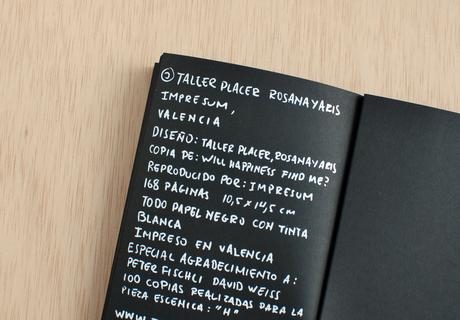 TALLER PLACER ROSANAYARIS
IMPRESUM,
VALENCIA
DISEÑO: TALLER PLACER, ROSANAYARIS
COPIA DE: WILL HAPPINESS FIND ME?
REPRODUCIDO POR: IMPRESUM
168 PÁGINAS 10,5 X 14,5 CM
TODO PAPEL NEGRO CON TINTA
BLANCA
IMPRESO EN VALENCIA
ESPECIAL AGRADECIMIENTO A:
PETER FISCHLI DAVID WEISS
100 COPIAS REALIZADAS PARA LA
PIEZA ESCÉNICA: "H"